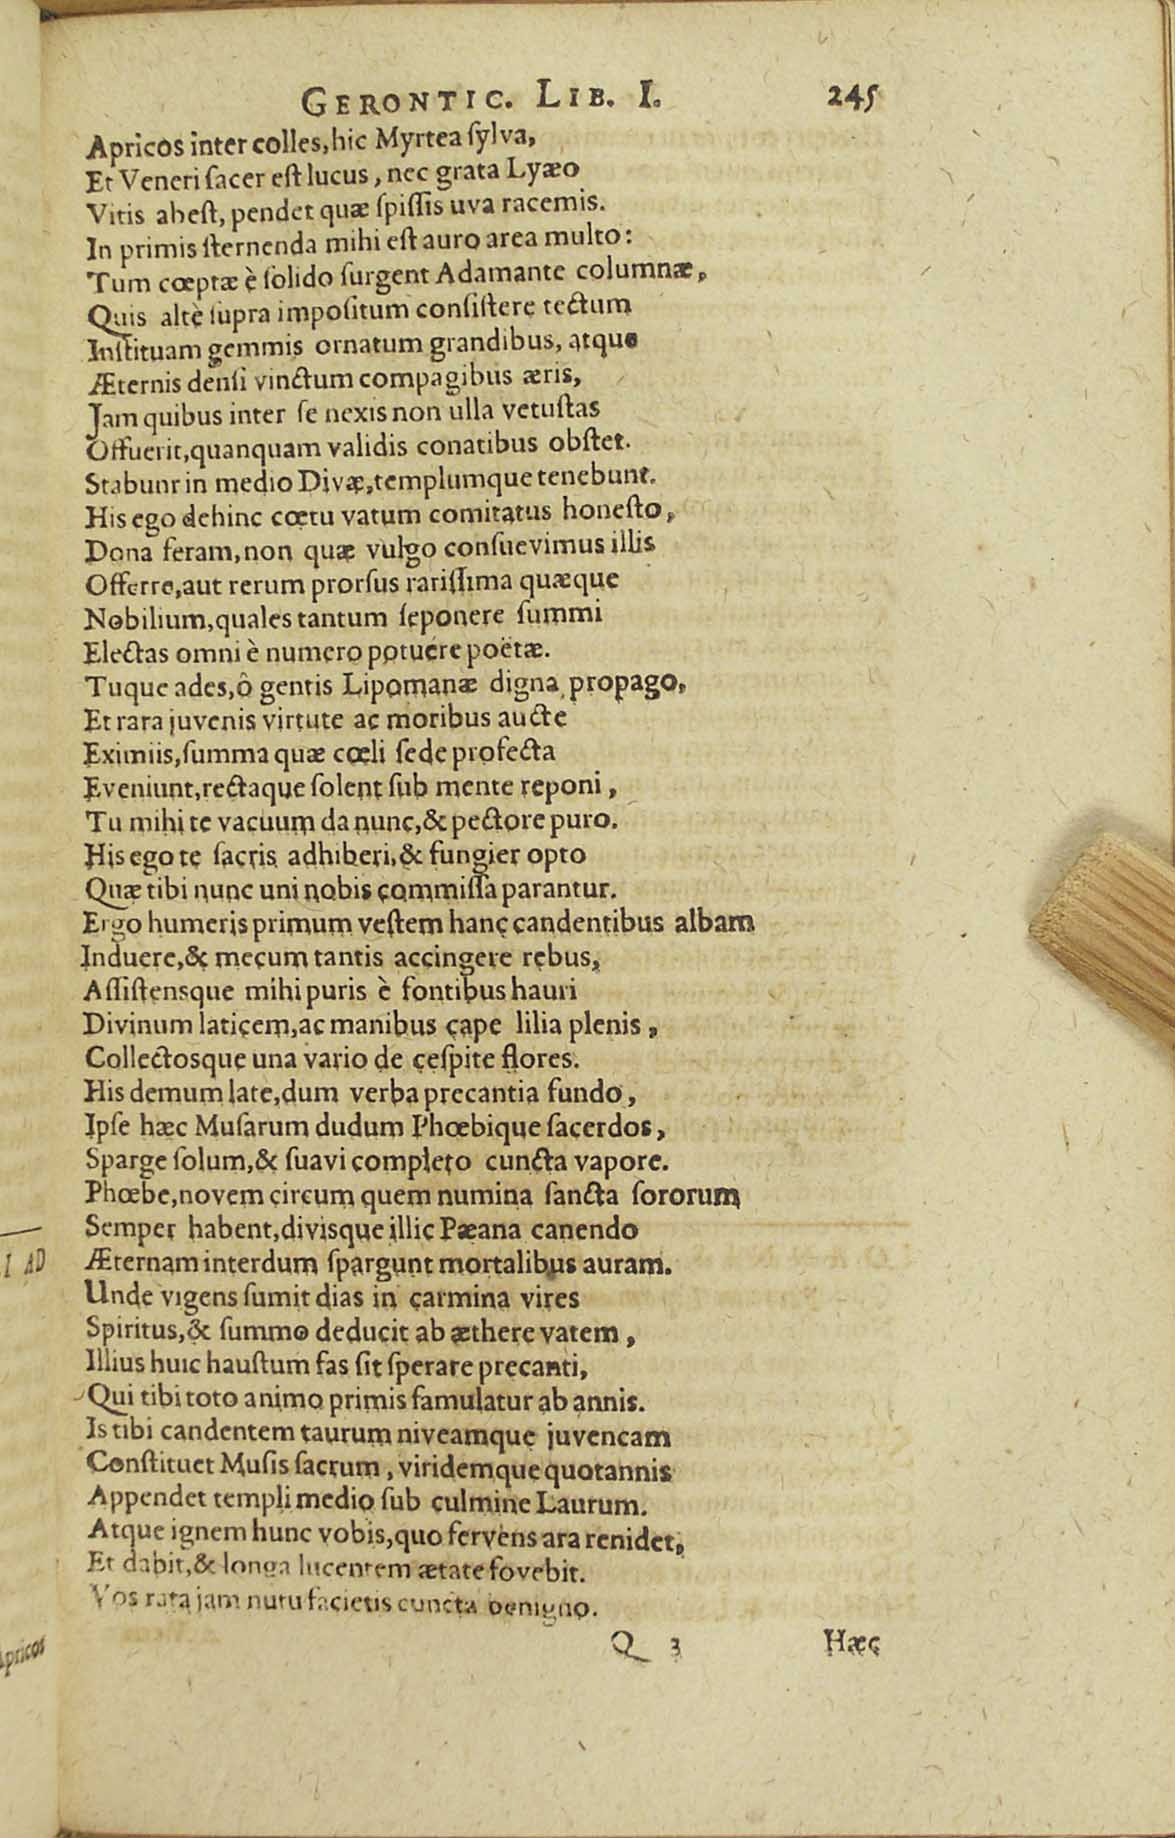 GERONTIC. LIB. I. 245
Apricos inter colles, hic Myrtea ſylva,
Et Veneri ſacer eſt lucus, nec grata Lyæo
Vitis abeſt, pendet quæ ſpiſſis uva racemis.
In primis ſternenda mihi eſt auro area multo:
Tum cœptæ è ſolido ſurgent Adamante columnæ,
Quis altè ſupra impoſitum conſiſtere tectum
Inſtituam gemmis ornatum grandibus, atque
Æternis denſi vinctum compagibus æris,
Jam quibus inter ſe nexis non ulla vetuſtas
Offuerit, quanquam validis conatibus obſtet.
Stabunt in medio Divæ, templumque tenebunt.
His ego dehinc cœtu vatum comitatus honeſto,
Dona feram, non quæ vulgo conſuevimus illis
Offerre, aut rerum prorſus rariſſima quæque
Nobilium, quales tantum ſeponere ſummi
Electas omni è numero potuere poëtæ.
Tuque ades, ô gentis Lipomanæ digna propago,
Et rara juvenis virtute ac moribus aucte
Eximiis, ſumma quæ cœli ſede profecta
Eveniunt, rectaque ſolent ſub mente reponi,
Tu mihi te vacuum da nunc, & pectore puro.
His ego te ſacris adhiberi, & fungier opto
Quæ tibi nunc uni nobis commiſſa parantur.
Ergo humeris primum veſtem hanc candentibus albam
Induere, & mecum tantis accingere rebus,
Aſſiſtensque mihi puris è fontibus hauri
Divinum laticem, ac manibus cape lilia plenis,
Collectosque una vario de ceſpite flores.
His demum late, dum verba precantia fundo,
Ipſe hæc Muſarum dudum Phœbique ſacerdos,
Sparge ſolum, & ſuavi completo cuncta vapore.
Phœbe, novem circum quem numina ſancta ſororum
Semper habent, divisque illic Pæana canendo
Æternam interdum ſpargunt mortalibus auram.
Unde vigens ſumit dias in carmina vires
Spiritus, & ſummo deducit ab æthere vatem,
Illius huic hauſtum fas ſit ſperare precanti,
Qui tibi toto animo primis famulatur ab annis.
Is tibi candentem taurum niveamque juvencam
Conſtituet Muſis ſacrum, viridemque quotannis
Appendet templi medio ſub culmine Laurum.
Atque ignem hunc vobis, quo fervens ara renidet,
Et dabit, & longa lucentem ætate fovebit.
Vos rata jam nutu facietis cuncta benigno.
Q 3 Hæc
I AD
Apricos